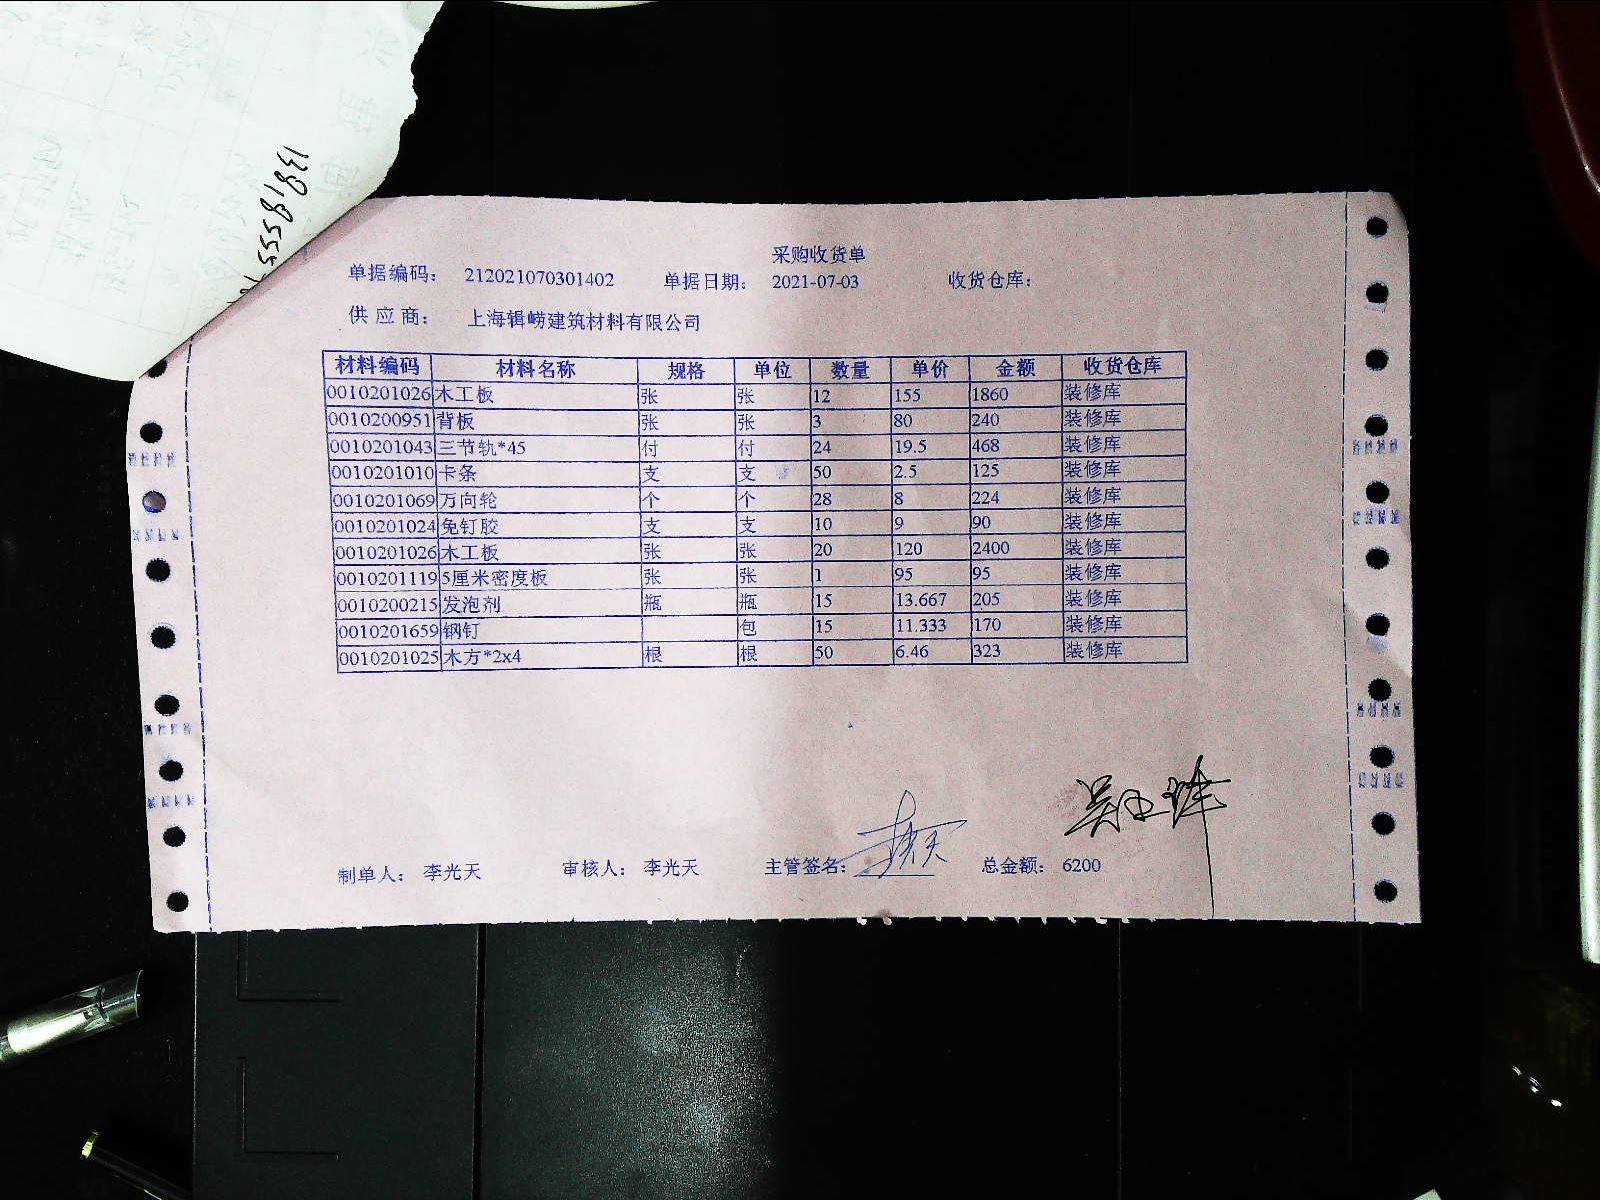 1381855571
采购收货单
单据编码： 212021070301402 单据日期： 2021-07-03 收货仓库：
供应商： 上海辑崂建筑材料有限公司
材料编码 材料名称 规格 单位 数量 单价 金额 收货仓库
0010201026 木工板 张 张 12 155 1860 装修库
0010200951 背板 张 张 3 80 240 装修库
0010201043 三节轨*45 付 付 24 19.5 468 装修库
0010201010 卡条 支 支 50 2.5 125 装修库
0010201069 万向轮 个 个 28 8 224 装修库
0010201024 免钉胶 支 支 10 9 90 装修库
0010201026 木工板 张 张 20 120 2400 装修库
0010201119 5厘米密度板 张 张 1 95 95 装修库
0010200215 发泡剂 瓶 瓶 15 13.667 205 装修库
0010201659 钢钉 包 15 11.333 170 装修库
0010201025 木方*2x4 根 根 50 6.46 323 装修库
制单人： 李光天 审核人： 李光天 主管签名： 总金额： 6200